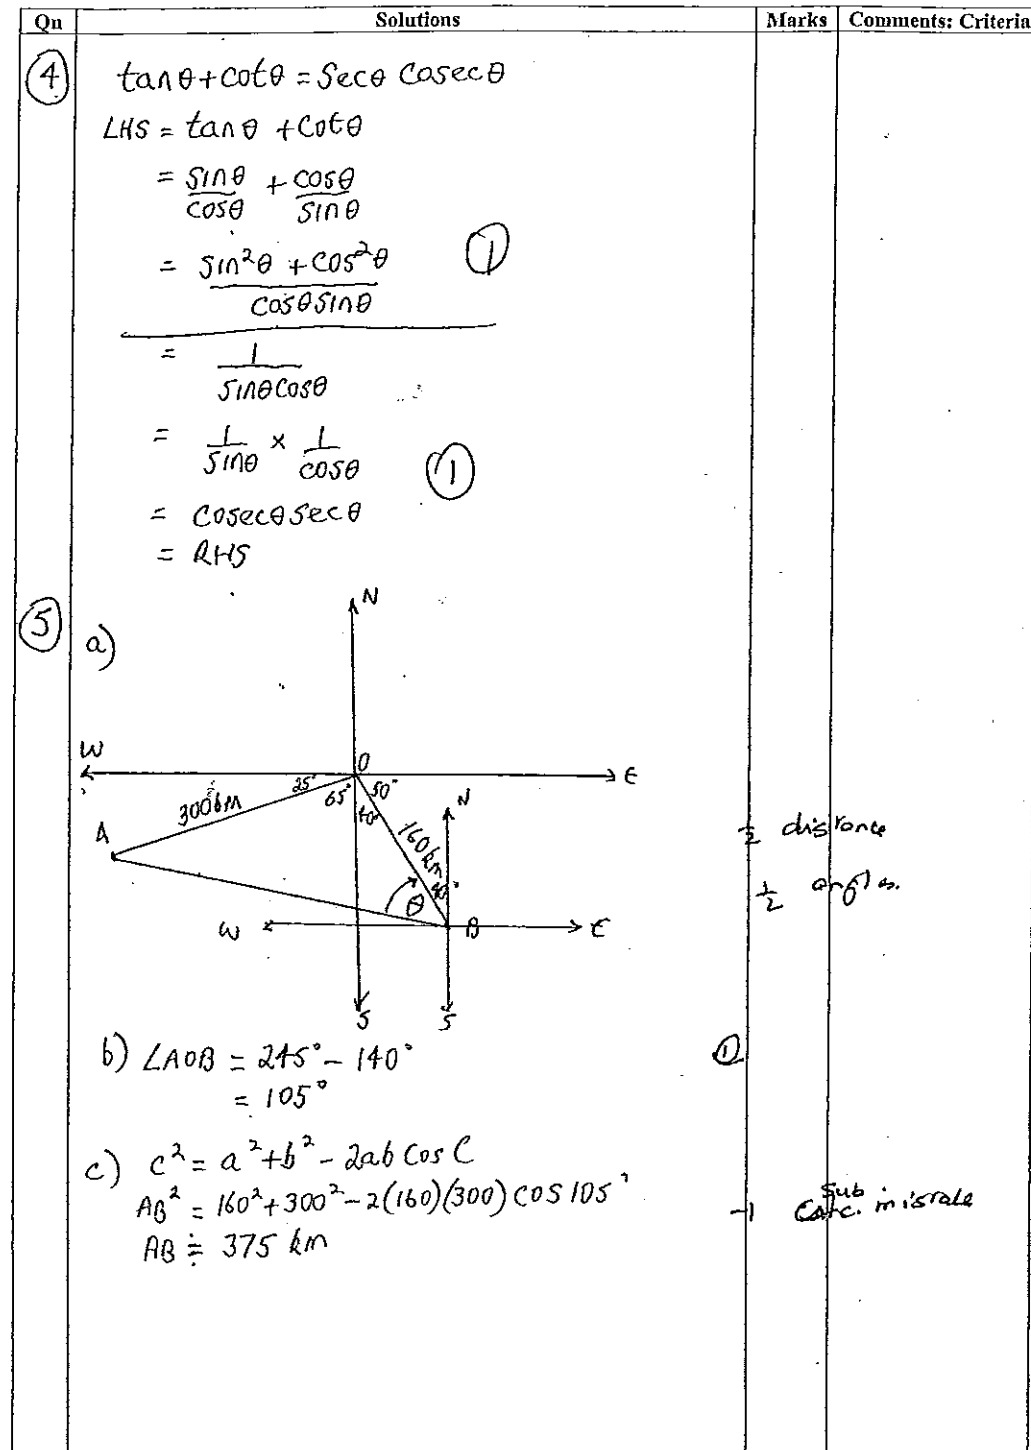 Qn Solutions Marks Comments: Criteria
4 tanθ+cotθ = Secθ Cosecθ
LHS = tanθ + Cotθ
= sinθ/cosθ + cosθ/sinθ
= sin²θ + cos²θ / cosθsinθ 1
= 1/sinθcosθ
= 1/sinθ × 1/cosθ 1
= cosecθsecθ
= RHS
5 a)
N
W O E
25° 65° 50°
40°
300km
160km
N
A
40°
θ
W B E
S S
1/2 distance
1/2 angles.
b) ∠AOB = 245° - 140° 1
= 105°
c) c² = a²+b² - 2ab Cos C
AB² = 160²+300²-2(160)(300) COS 105° -1 Sub
AB ≑ 375 km